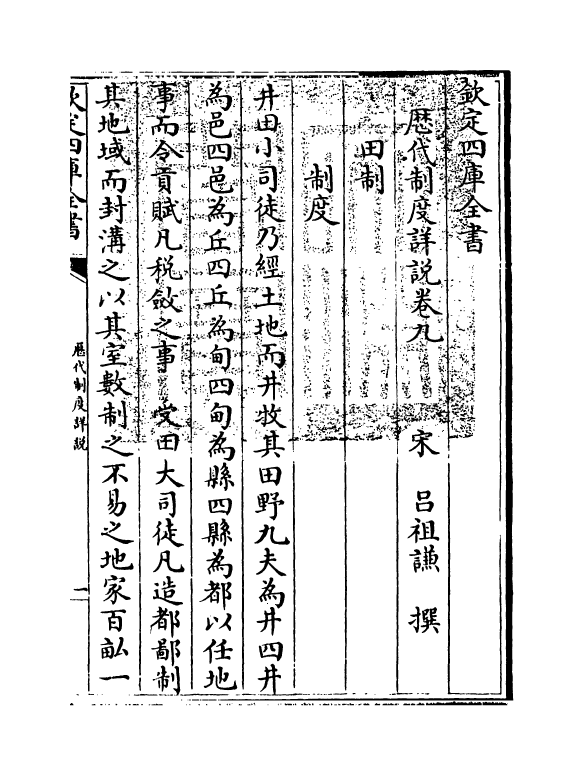 欽定四庫全書
歴代制度詳説卷九　宋　呂祖謙　撰
田制
制度
井田小司徒乃經土地而井牧其田野九夫為井四井
為邑四邑為丘四丘為甸四甸為縣四縣為都以任地
事而令貢賦凡税斂之事　受田大司徒凡造都鄙制
其地域而封溝之以其室數制之不易之地家百畝一
欽定四庫全書
歴代制度詳説
一